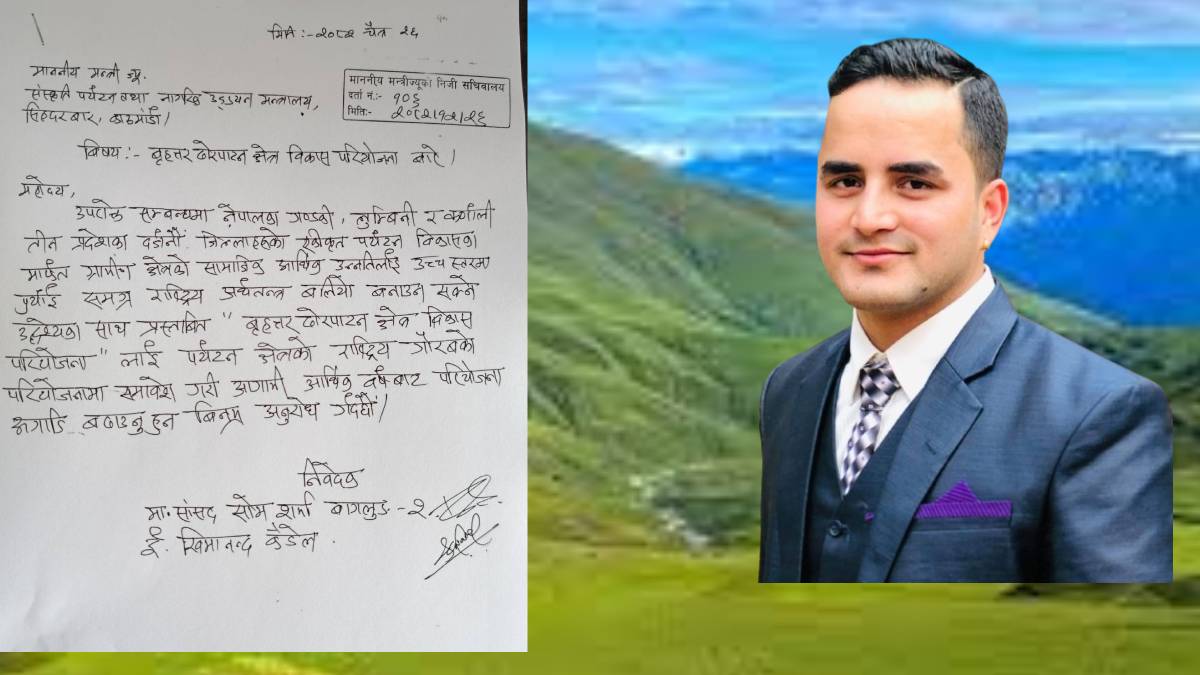 मिति :- २०८२ चैत्र २६
माननीय मन्त्री ज्यू,
संस्कृति पर्यटन तथा नागरिक उड्डयन मन्त्रालय,
सिंहदरबार, काठमाडौं।
माननीय मन्त्रीज्यूको निजी सचिवालय
दर्ता नं.:- १०६
मिति:- २०८२।१२।२६
बिषय :- बृहत्तर ढोरपाटन क्षेत्र विकास परियोजना बारे।
महोदय,
उपरोक्त सम्बन्धमा नेपालका गण्डकी, लुम्बिनी र कर्णाली
तीन प्रदेशका दर्जनौं जिल्लाहरुको एकीकृत पर्यटन विकासका
मार्फत ग्रामीण क्षेत्रको सामाजिक आर्थिक उन्नतिलाई उच्च स्तरमा
पुर्याई समग्र राष्ट्रिय अर्थतन्त्र बलियो बनाउन सक्ने
उद्देश्यका साथ प्रस्तावित " बृहत्तर ढोरपाटन क्षेत्र विकास
परियोजना " लाई पर्यटन क्षेत्रको राष्ट्रिय गौरवको
परियोजनामा समावेश गरी आगामी आर्थिक वर्षबाट परियोजना
अगाडि बढाउनुहुन बिनम्र अनुरोध गर्दछौं।
निवेदक
मा. सांसद सोम शर्मा बागलुङ - २
ई. खिमानन्द कँडेल